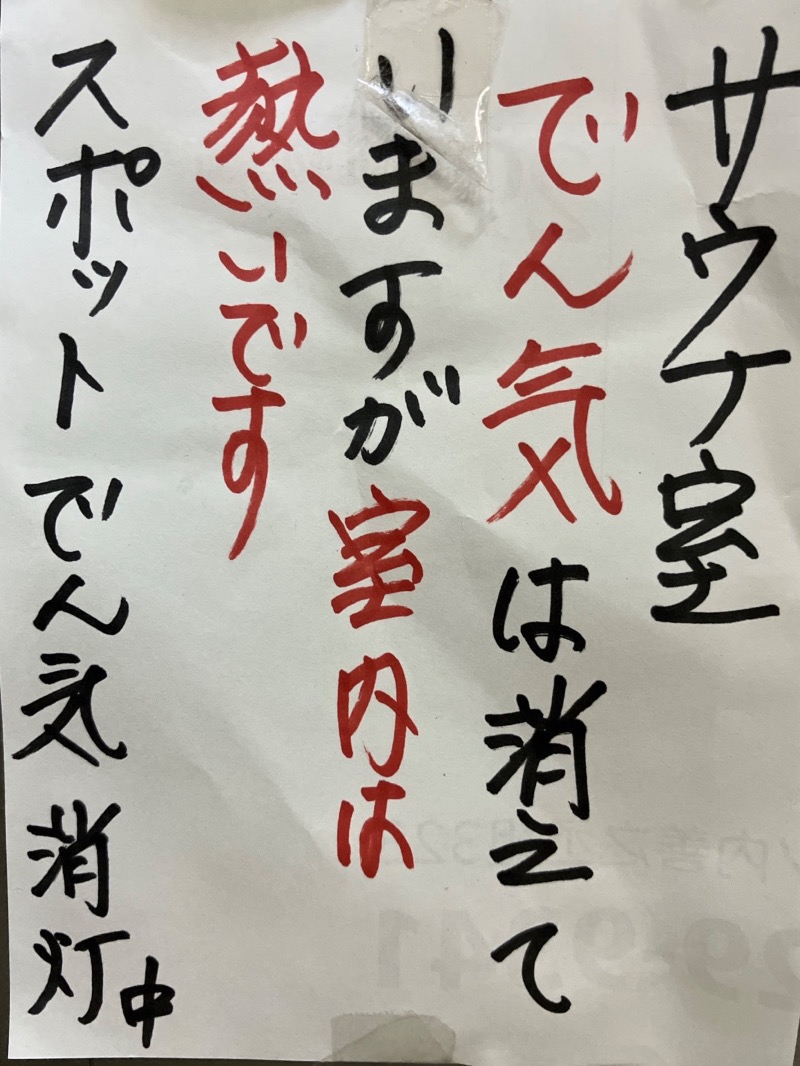 サウナ室
でん気は消えて
いますが室内は
熱いです
スポットでん気消灯中